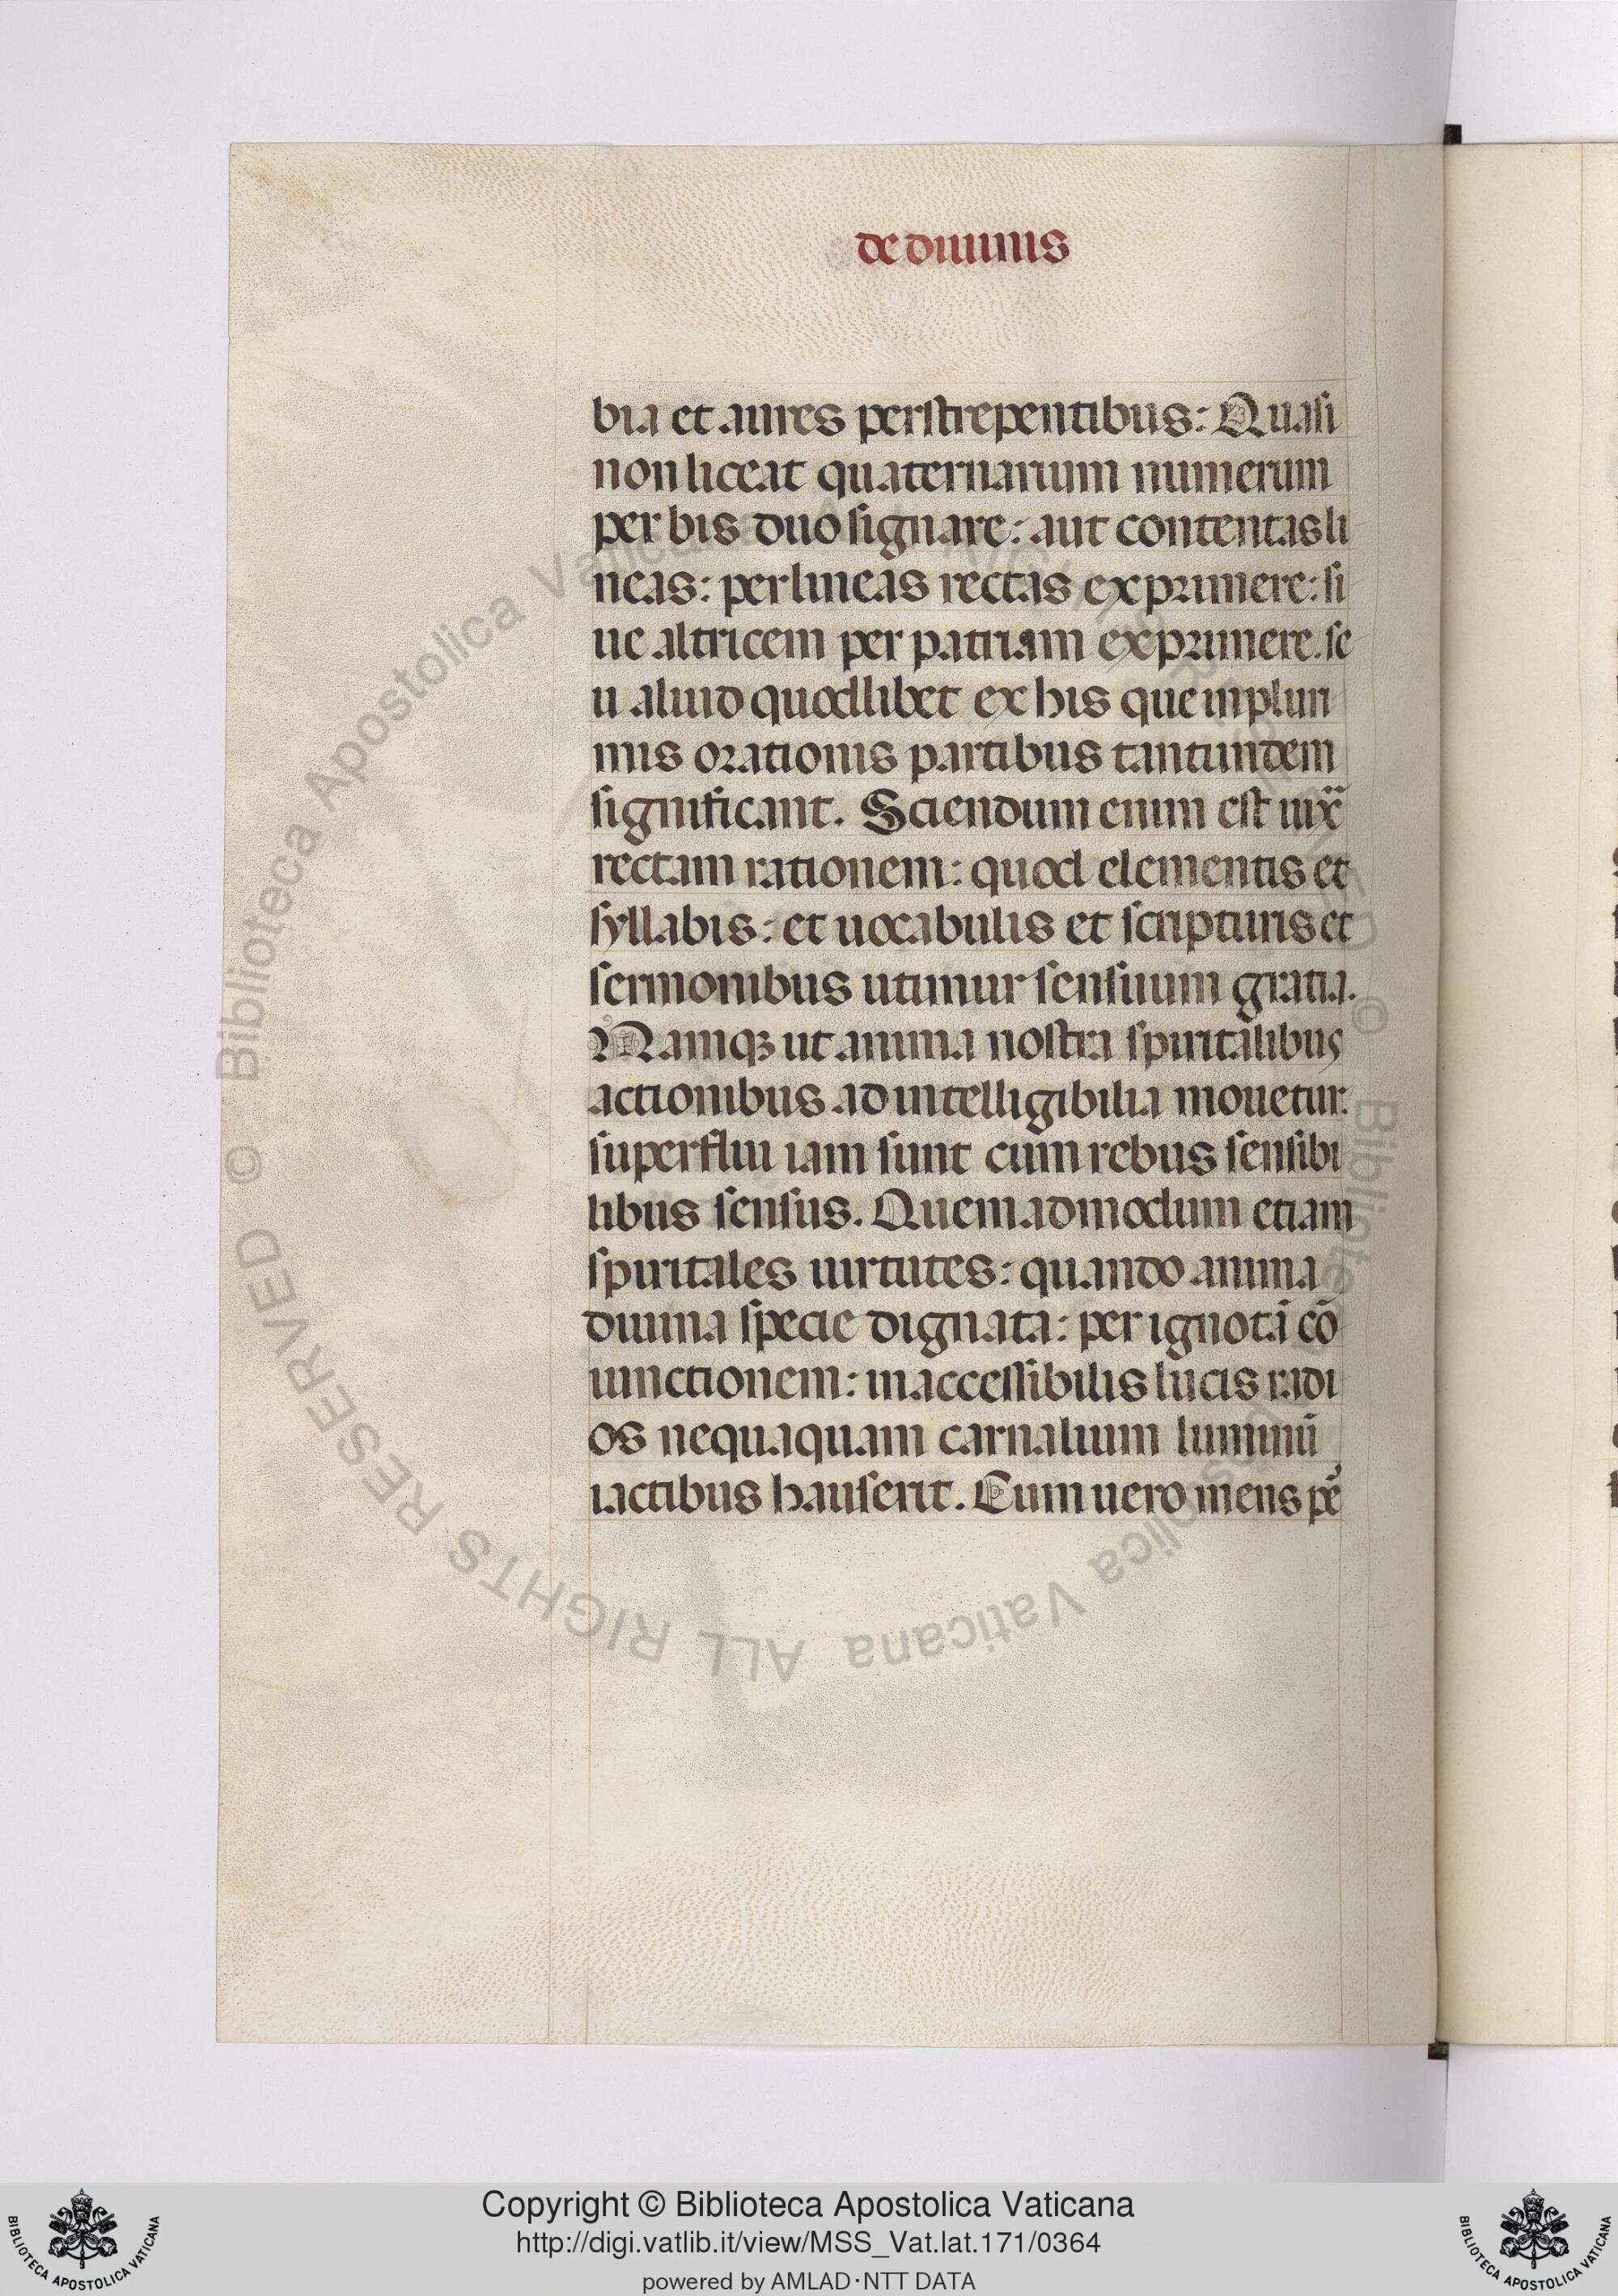 de diuinis
bia et aures perstrepentibus: Quasi
non liceat quaternarium numerum
per bis duo signare: aut contentas li
neas: per lineas rectas exprimere: si
ue altricem per patriam exprimere. se
u aliud quodlibet ex his que in pluri
mis orationis partibus tantundem
significant. Sciendum enim est iuxͣ
rectam rationem: quod elementis et
syllabis: et uocabulis et scripturis et
sermonibus utimur sensuum gratia.
Namqꝫ ut anima nostra spiritalibus
actionibus ad intelligibilia mouetur:
superflui iam sunt cum rebus sensibi
libus sensus. Quemadmodum etiam
spiritales uirtutes: quando anima
diuina specie dignata: per ignotā cō
iunctionem: inaccessibilis lucis radi
os nequaquam carnalium luminū
iactibus hauserit. Cum uero mens pe᷑
© Biblioteca Apostolica Vaticana ALL RIGHTS RESERVED
© Biblioteca Apostolica Vaticana ALL RIGHTS RESERVED
Copyright © Biblioteca Apostolica Vaticana
http://digi.vatlib.it/view/MSS_Vat.lat.171/0364
powered by AMLAD·NTT DATA
BIBLIOTECA APOSTOLICA VATICANA
BIBLIOTECA APOSTOLICA VATICANA